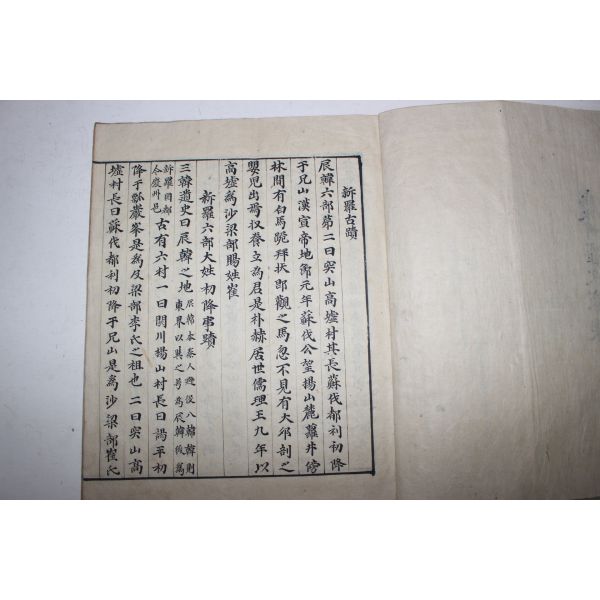 新羅古蹟
辰韓六部第二曰突山高墟村其長蘇伐都利初降
于兄山漢宣帝地節元年蘇伐公望揚山麓蘿井傍
林間有白馬跪拜狀卽觀之馬忽不見有大卵剖之
嬰兒出焉收養立為君是朴赫居世儒理王九年以
高墟為沙梁部賜姓崔
新羅六部大姓初降事蹟
三韓遺史曰辰韓之地辰韓本秦人避役入韓韓割東界以與之号為辰韓後為
新羅國都今慶州也古有六村一曰閼川揚山村長曰謁平初
降于瓢巖峯是為及梁部李氏之祖也二曰突山高
墟村長曰蘇伐都利初降于兄山是為沙梁部崔氏